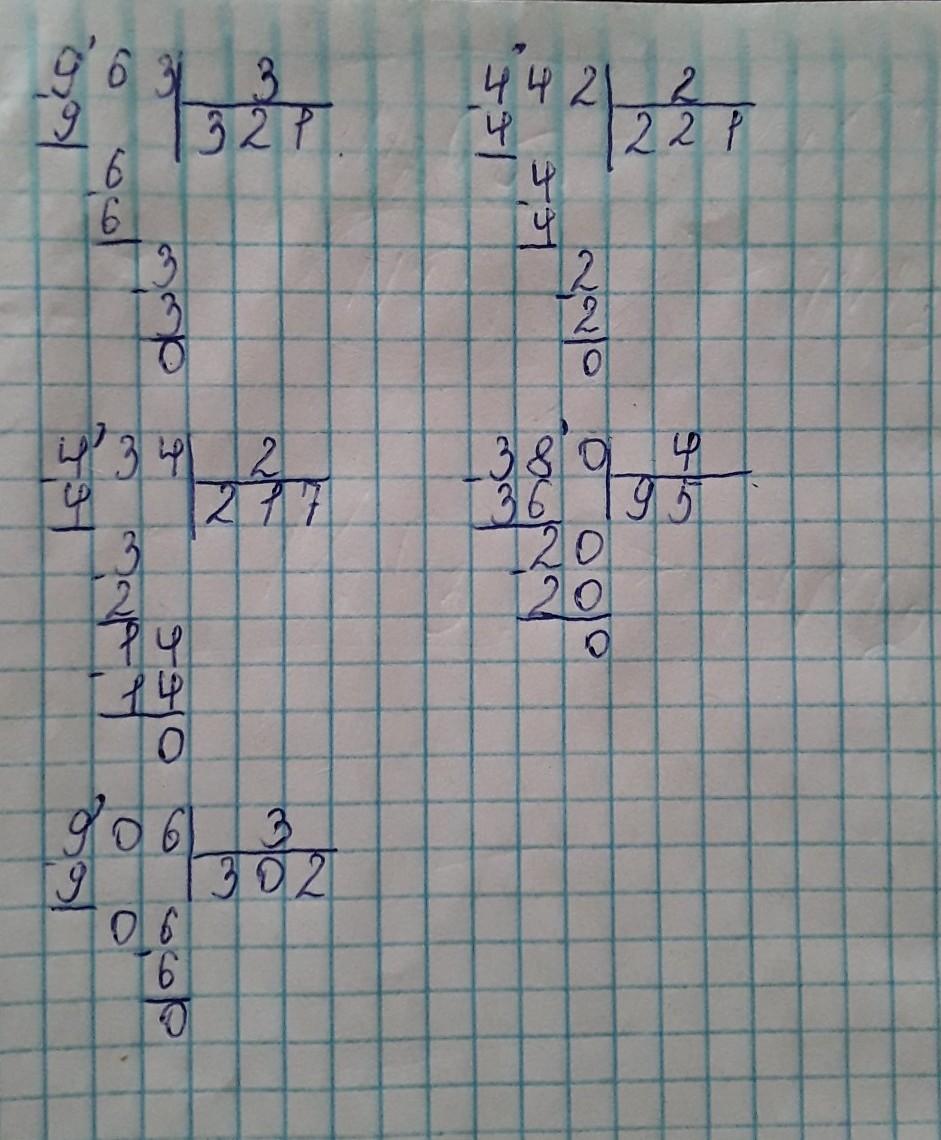 9'63|3
-9 321
-6
6
3
-3
0
4'42|2
-4 221
-4
4
2
-2
0
4'34|2
-4 217
-3
2
14
-14
0
-38'0|4
36 95
-20
20
0
9'06|3
-9 302
06
-6
0